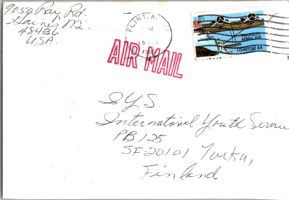 9059 Ray Rd.
Gaines, MI.
48436
U.S.A.
FLINT, MI
AIR MAIL
IYS
International Youth Service
PB 125
SF 20101 Turku,
Finland